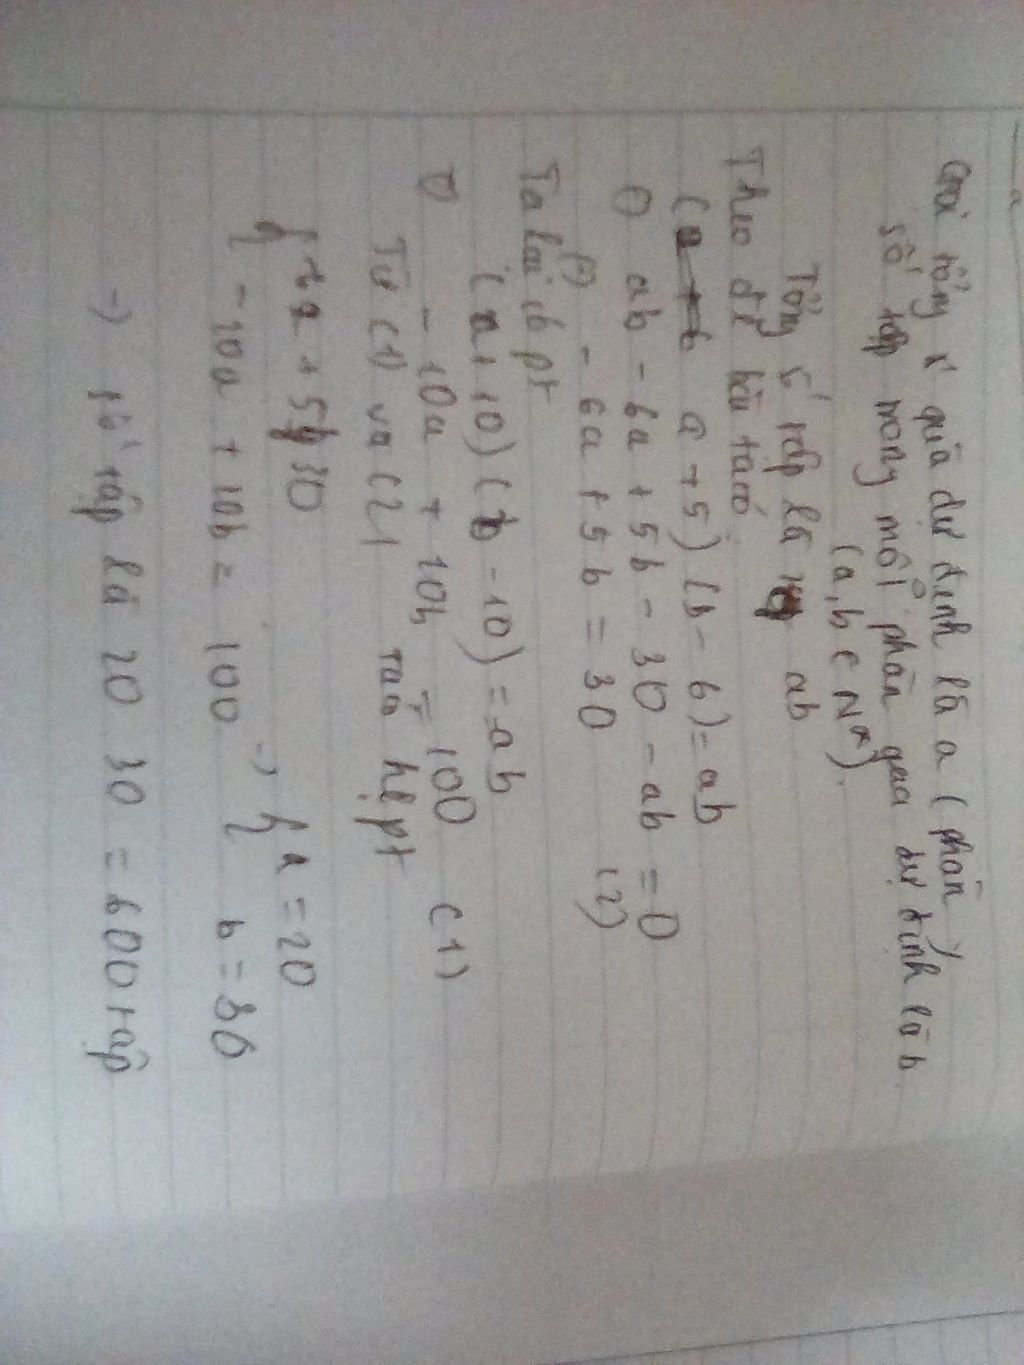 Gọi tổng số quà dự định là a (phần)
số tập trong mỗi phần quà dự định là b
(a, b ∈ N*).
Tổng số tập là ab
Theo đề bài ta có
(a + 5)(b - 6) = ab
ab - 6a + 5b - 30 - ab = 0
- 6a + 5b = 30 (2)
Ta lại có pt
(a + 10)(b - 10) = ab
- 10a + 10b = 100 (1)
Từ (1) và (2) ta có hệ pt
{ + 5b 30
{ -10a + 10b = 100 → { a = 20
b = 30
→ số tập là 20 30 = 600 tập